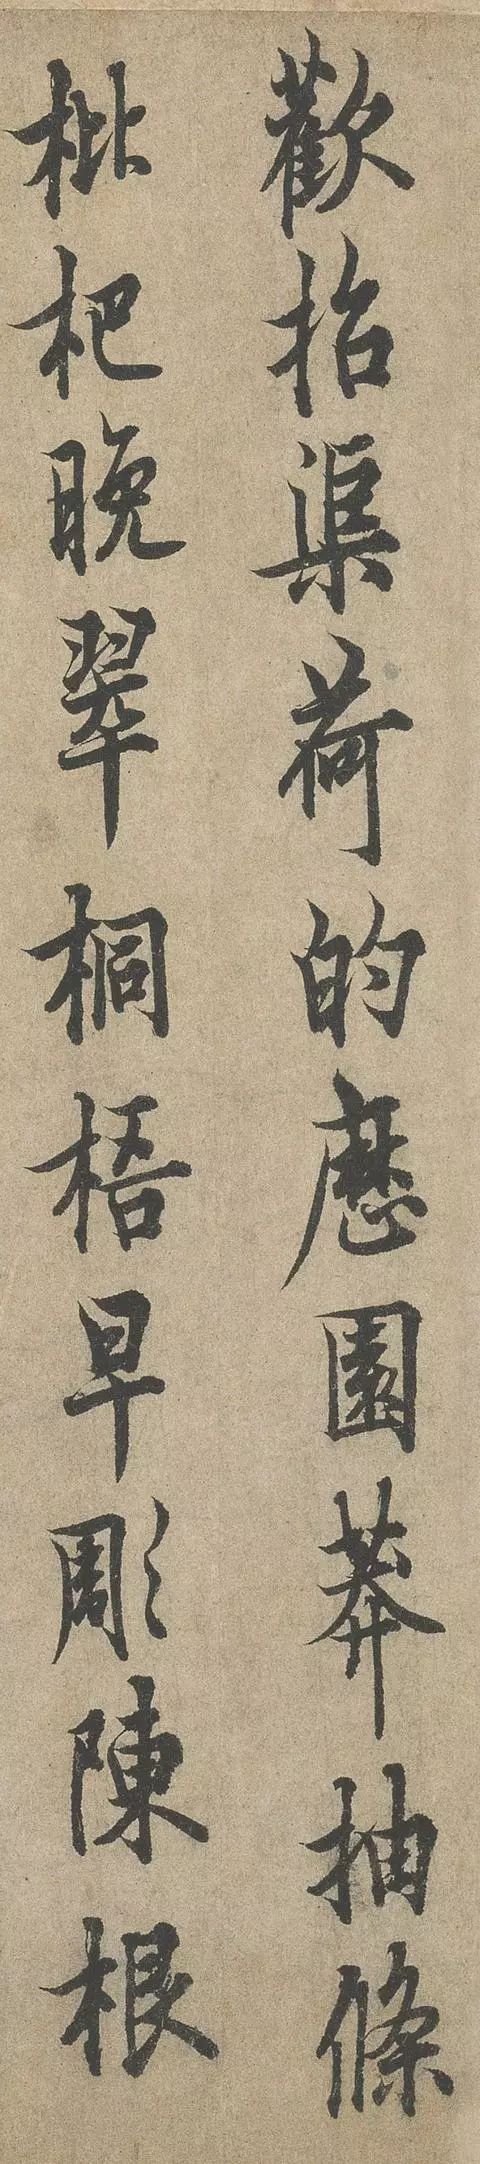 歡招渠荷的歷園莽抽條
枇杷晚翠桐梧早彫陳根